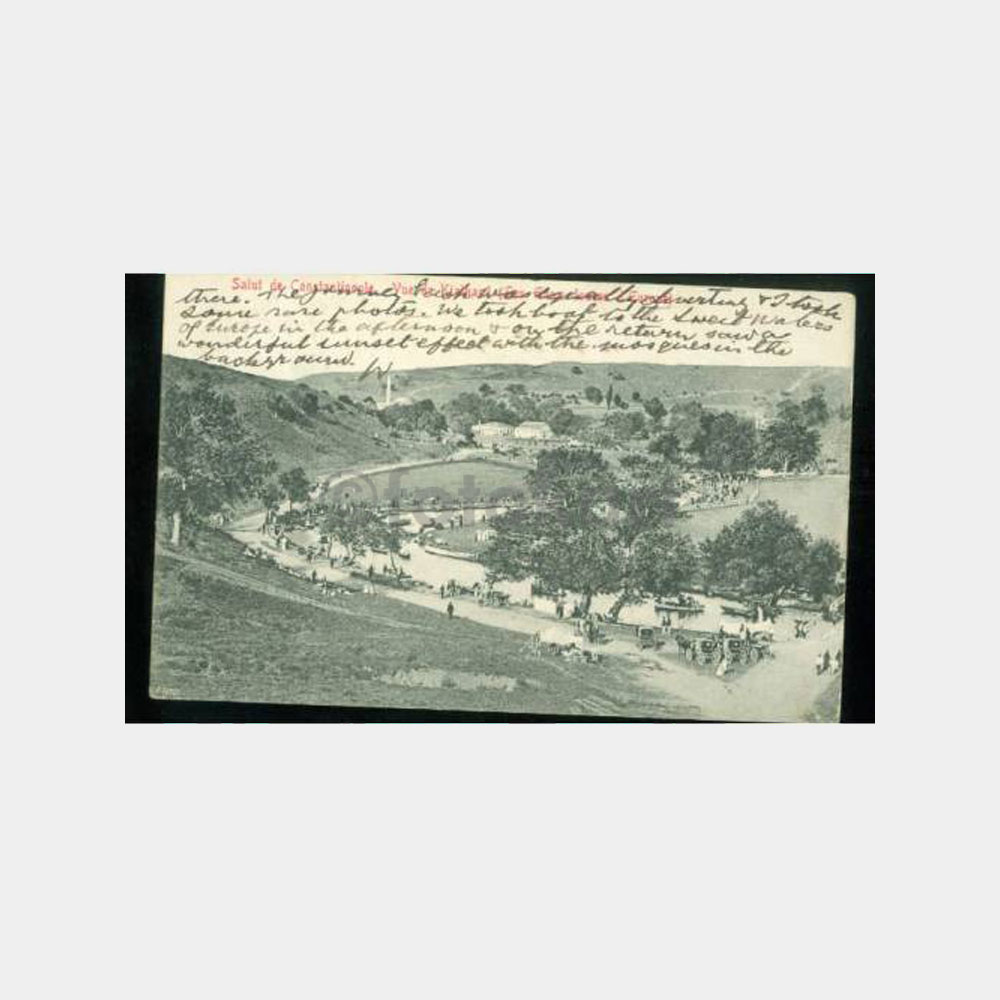 Salut de Constantinople. Vue de
there. The journey back was equally diverting & I took
some rare photos. We took boat to the Sweet Waters
of Europe in the afternoon & on the return saw a
wonderful sunset effect with the mosques in the
background.